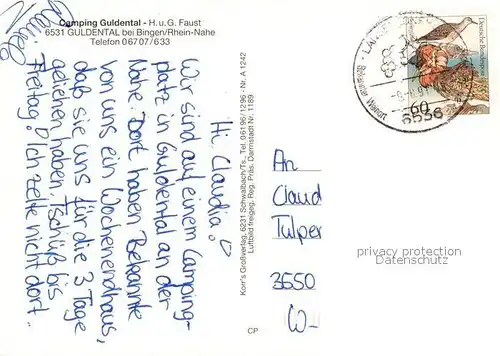 Camping Guldental - H. u. G. Faust
6531 GULDENTAL bei Bingen/Rhein-Nahe
Telefon 06707/633
Hi Claudia!
Wir sind auf einem Camping-
platz in Guldental an der
Nahe. Dort haben Bekannte
von uns ein Wochenendhaus,
daß sie uns für die 3 Tage
geliehen haben. Tschüß bis
Freitag! Ich zelte nicht dort.
Korr's Großverlag, 6231 Schwalbach/Ts., Tel. 06196/1296 - Nr. A 1242
Luftbild freigeg. Reg. Präs. Darmstadt Nr. 1189
CP
Deutsche Bundespost
60
6538
An
Claud
Tulper
3550
W-
privacy protection
Datenschutz